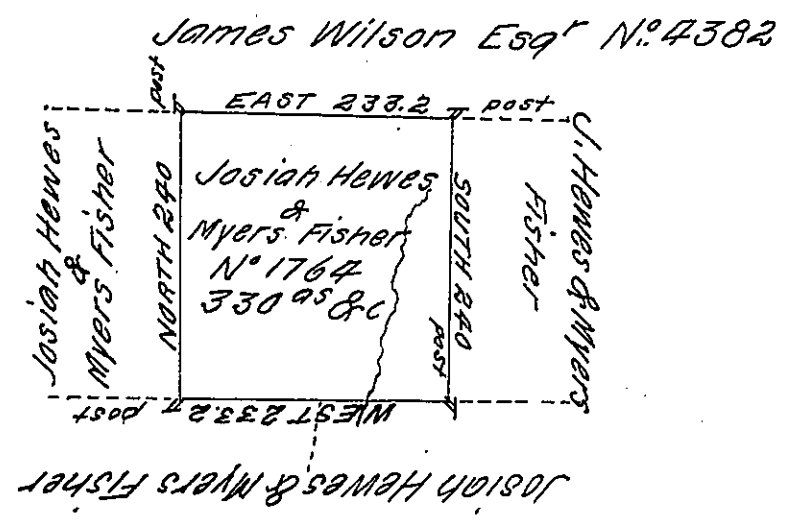 James Wilson Esqr No. 4382
post
EAST 233.2
post
Josiah Hewes
&
Myers Fisher
NORTH 240
Josiah Hewes
&
Myers Fisher
No 1764
330 as &c
SOUTH 240
post
J. Hewes & Myers
Fisher
post
WEST 233.2
Josiah Hewes & Myers Fisher